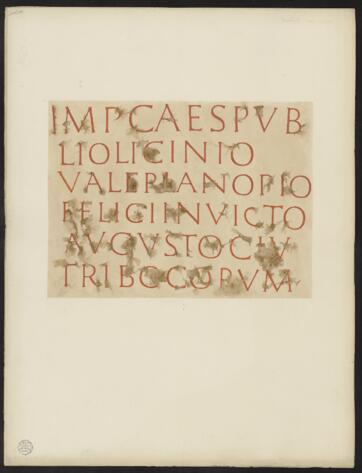 IMPCAESPVB
LIOLICINIO
VALERIANOPIO
FELICIINVICTO
AVGVSTOCIV
TRIBOCORVM